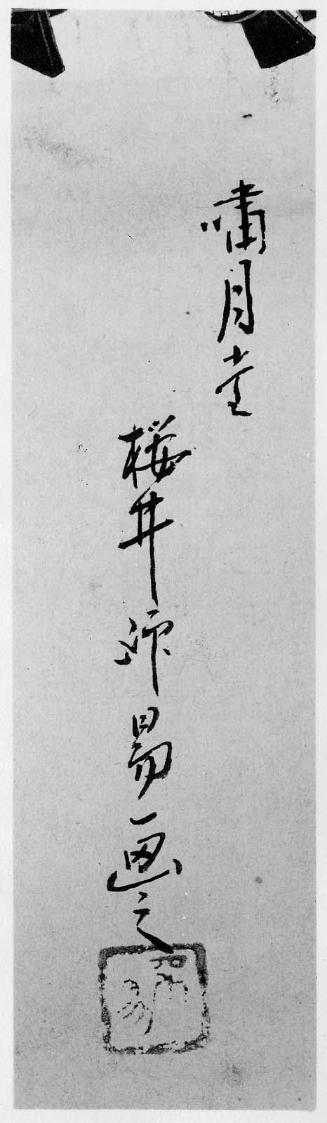 嘯月堂
桜井 易画之